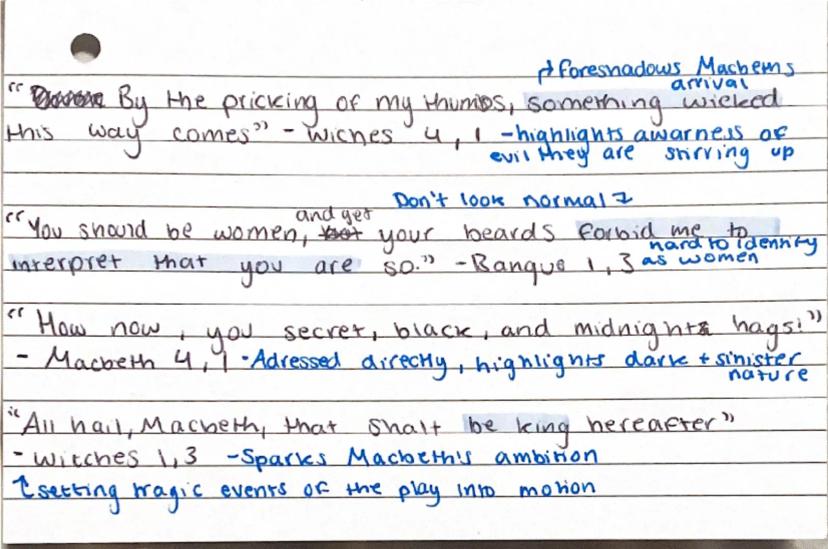 ↱foreshadows Macbeths
arrival
“ By the pricking of my thumbs, something wicked
this way comes” - wiches 4,1 -highlights awarness of
evil they are stirring up
Don't look normal
and yet
“You should be women, your beards forbid me to
hard to identify
interpret that you are so.” -Banquo 1,3 as women
“How now, you secret, black, and midnight hags!”
- Macbeth 4,1 ·Adressed directly, highlights dark + sinister
nature
“All hail, Macbeth, that shalt be king hereafter”
- witches 1,3 -Sparks Macbeth's ambition
↑setting tragic events of the play into motion